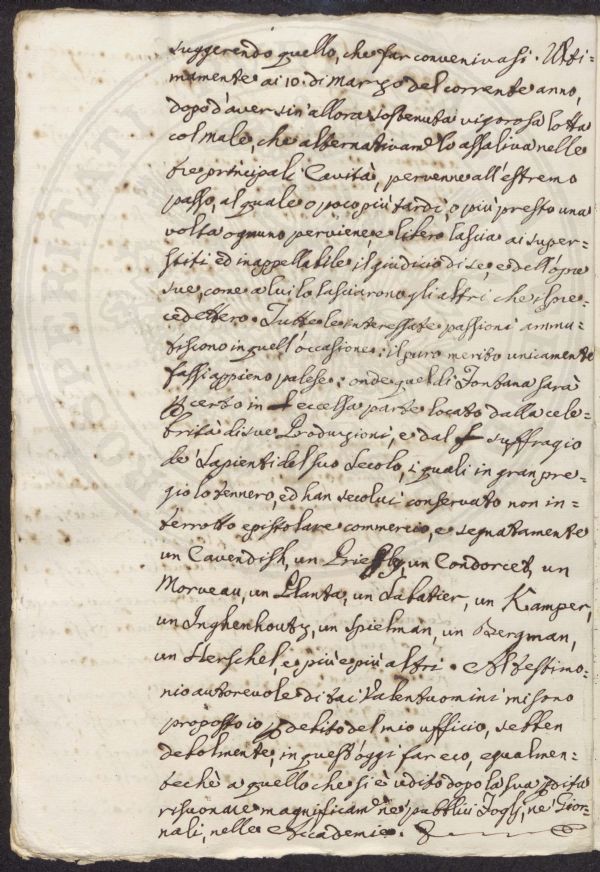 suggerendo quello, che far convenivasi. Ulti-
mamente ai 10. di Marzo del corrente anno,
dopo d'aver sin'allora sostenuta vigorosa lotta
col male, che alternativamᵉ lo assaliva nelle
tre principali Cavità, pervenne all'estremo
passo, al quale o poco più tardi, o più presto una
volta ognuno perviene, e libero lascia ai super-
stiti ed inappellabile il giudicio di se, e dell'opre
sue, come a lui lo lasciarono gli altri che il pre-
cedettero. Tutte le interessate passioni ammu-
tiscono in quell'occasione: il puro merito unicamente
fassi appieno palese: onde quel di Fontana sarà
certo in eccelsa parte locato dalla cele-
brità di sue Produzioni, e dal suffragio
de' Sapienti del suo Secolo, i quali in gran pre-
gio lo tennero, ed han secolui conservato non in-
terrotto epistolare commercio, e segnatamente
un Cavendish, un Priestly, un Condorcet, un
Morveau, un Planta, un Sabatier, un Kamper,
un Inghenhoutz, un Spielman, un Bergman,
un Herschel, e più e più altri. Al testimo-
nio autorevole di tai Valentuomini mi sono
proposto io debito del mio ufficio, sebben
debolmente, in quest'oggi far eco, egualmen-
techè a quello che si è udito dopo la sua
risuonare magnificamᵉ ne' pubblici Foglj, ne' Gior-
nali, nelle Accademie.